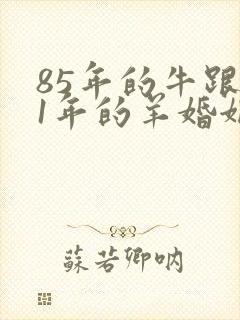 85年的牛跟
1年的羊婚
蘇若卿呐